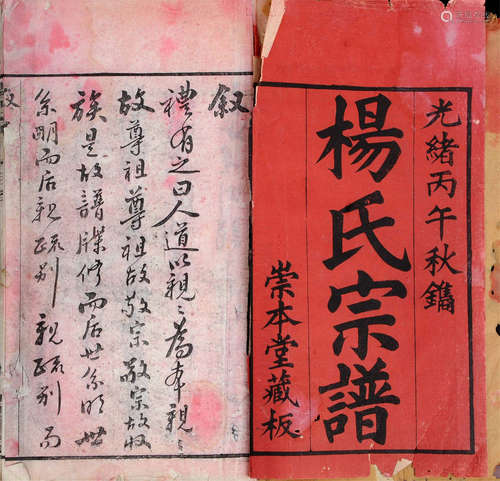 光緒丙午秋鐫
楊氏宗譜
崇本堂藏板
叙
禮有之曰人道以親〻為本親〻
故尊祖尊祖故敬宗敬宗故收
族是故譜牒修而后世系明世
系明而后親疏别親疏别而